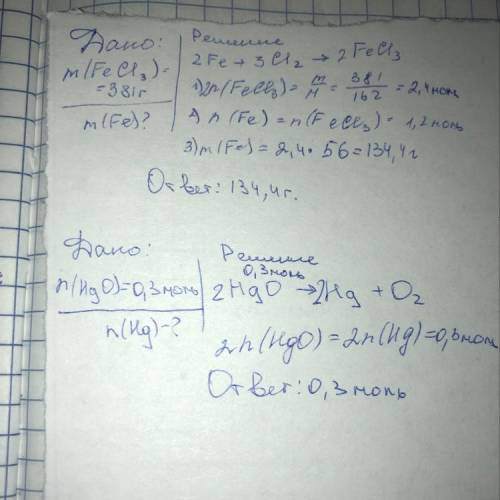 Дано:
m(FeCl₃)=
=381г
m(Fe)?
Решение
2Fe + 3Cl₂ → 2FeCl₃
1) n(FeCl₃) = m/M = 381/162 = 2,4 моль
2) n(Fe) = n(FeCl₃) = 1,2 моль
3) m(Fe) = 2,4 · 56 = 134,4 г
Ответ: 134,4 г.
Дано:
n(HgO)=0,3 моль
n(Hg)-?
Решение
0,3 моль
2HgO → 2Hg + O₂
2n(HgO) = 2n(Hg) = 0,3 моль
Ответ: 0,3 моль